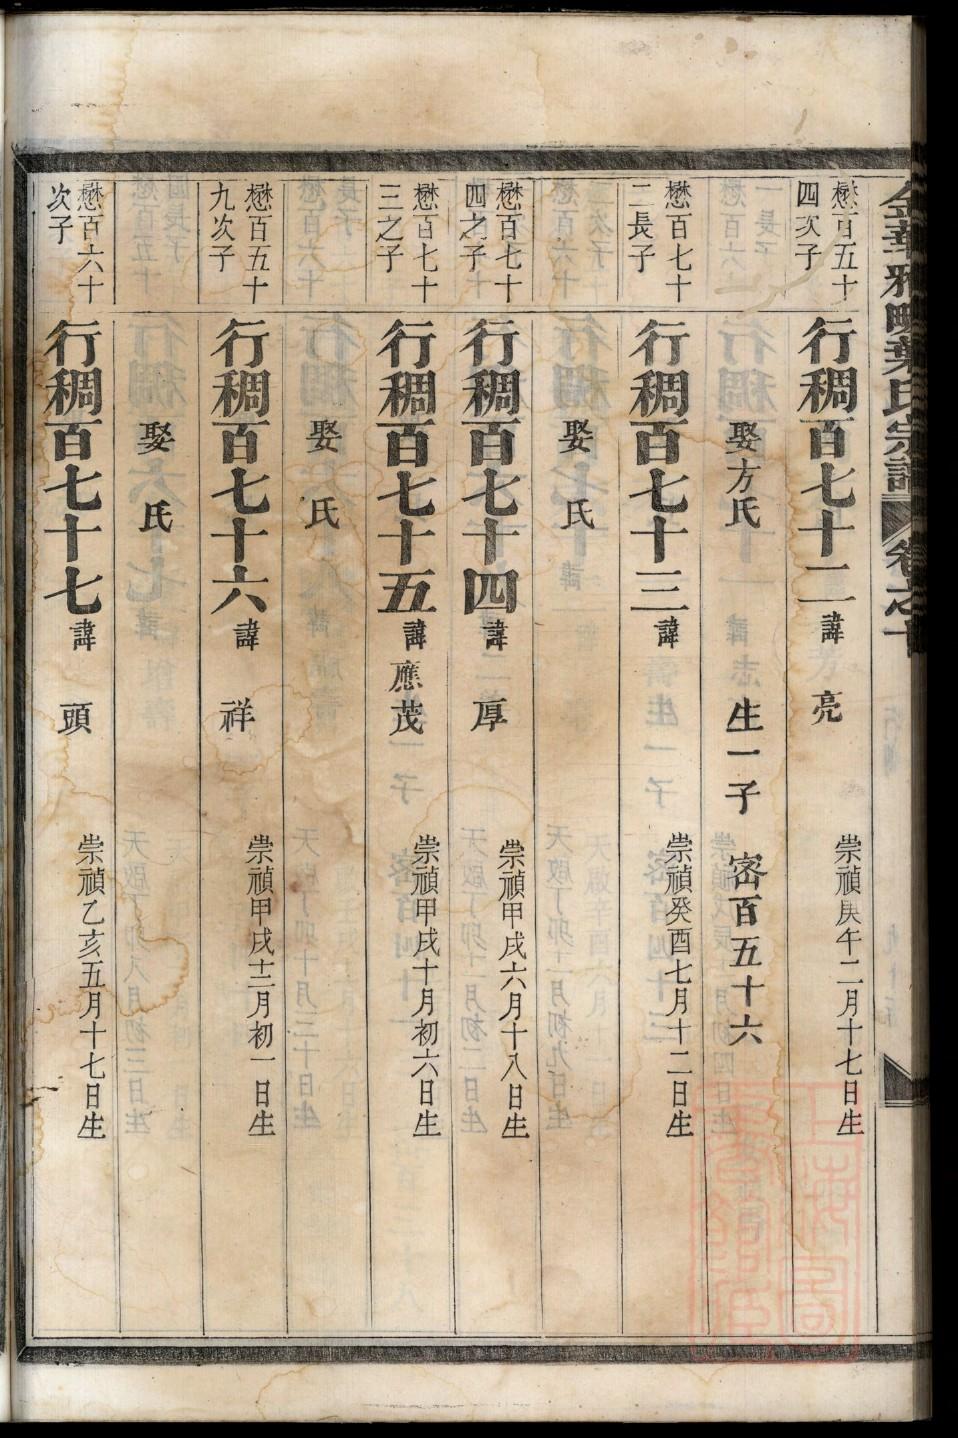 金華雅畈葉氏宗譜 卷之十
懋百五十
四次子
行稠百七十二 諱 亮 崇禎庚午二月十七日生
娶方氏 生一子 密百五十六
懋百七十
二長子
行稠百七十三 諱 崇禎癸酉七月十二日生
娶 氏
懋百七十
四之子
行稠百七十四 諱 厚 崇禎甲戌六月十八日生
懋百七十
三之子
行稠百七十五 諱 應茂 崇禎甲戌十月初六日生
娶 氏
懋百五十
九次子
行稠百七十六 諱 祥 崇禎甲戌十二月初一日生
娶 氏
懋百六十
次子
行稠百七十七 諱 頭 崇禎乙亥五月十七日生